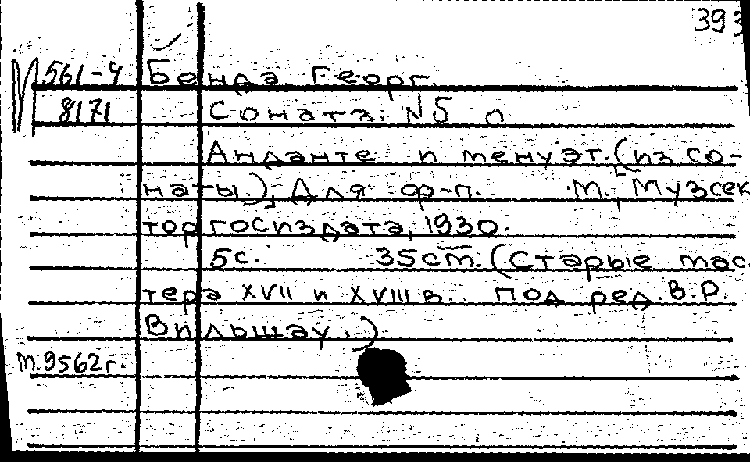 393
М 561-4 Бенда Георг
8171 Соната. N 5
Анданте и менуэт. (из со-
наты.). Для ф-п. М., Музсек
тор госиздата, 1930.
5с. 35 ст. (Старые мас
тера XVII и XVIII в. Под ред. В.Р.
Вильшау.)
М.9562г.